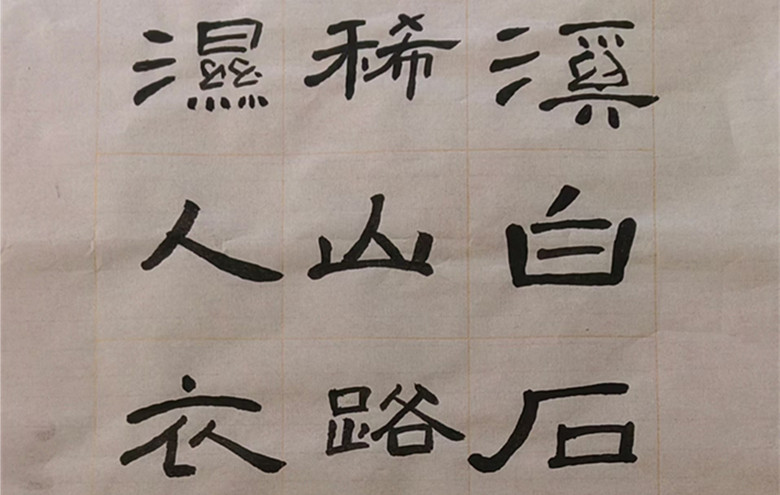 溪白石
稀山路
濕人衣